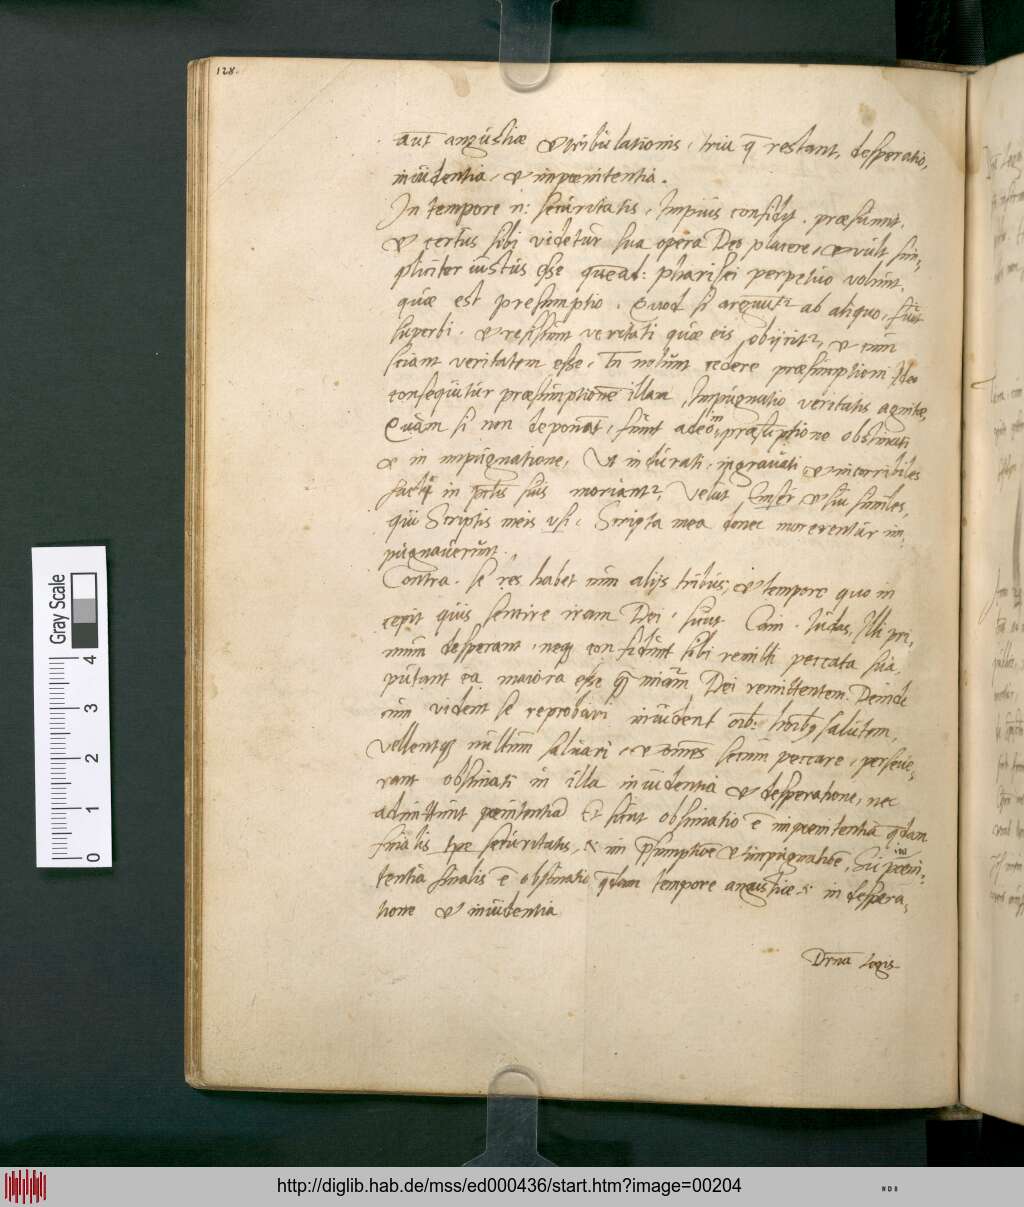 128.
aut angustiæ & tribulationis, triū q̄ restant, desperatio,
inuidentia, & impœnitentia.
In tempore n: securitatis, Impius confidit, præsumit,
& certus sibi videtur sua opera Deo placere, & vult sim-
pliciter iustus esse quead: pharisei perpetuo volunt,
quæ est presumptio. Quod si arguunt᷑ ab aliquo, fiūt
superbi, & resistunt veritati quæ eis obijcit᷑, & cum
sciant veritatem esse, Tn̄ nolunt cedere præsumptioni
consequitur præsumptionē illam, Impugnatio veritatis agnitæ,
Quam si non deponāt, fiunt adeo in præsūptione obstinati
& in impugnatione, Vt indurati, ingrauati & incorribiles
facti in pctis suis moriant᷑, Velut & sui similes,
qui Scriptis meis vsi, Scripta mea donec morerentur im-
pugnauerunt.
Contra se res habet cum alijs tribus, & tempore quo in
cepit quis sentire iram Dei, sicut Cain, Iudas, Illi pri,
mum desperant, neq; confidunt sibi remitti peccata sua,
putant ea maiora esse q̄ miām Dei remittentem. Deinde
cum vident se reprobari inuident oīb: hoībs salutem,
vellentq; nullum saluari, & omēs secum peccare, perseue,
rant obstinati in illa inuidentia & desperatione, nec
admittunt pœnitentiā Et sicut obstinatio ē impœnitentia q̄dam
finalis tpe securitatis, & in p̄sumptiōe & impugnatiōe, Sic impœni-
tentia finalis ē obstinatio q̄dam tempore angustiæ & in despera,
tione & inuidentia
Doctrina Legis
Gray Scale
0 1 2 3 4
http://diglib.hab.de/mss/ed000436/start.htm?image=00204